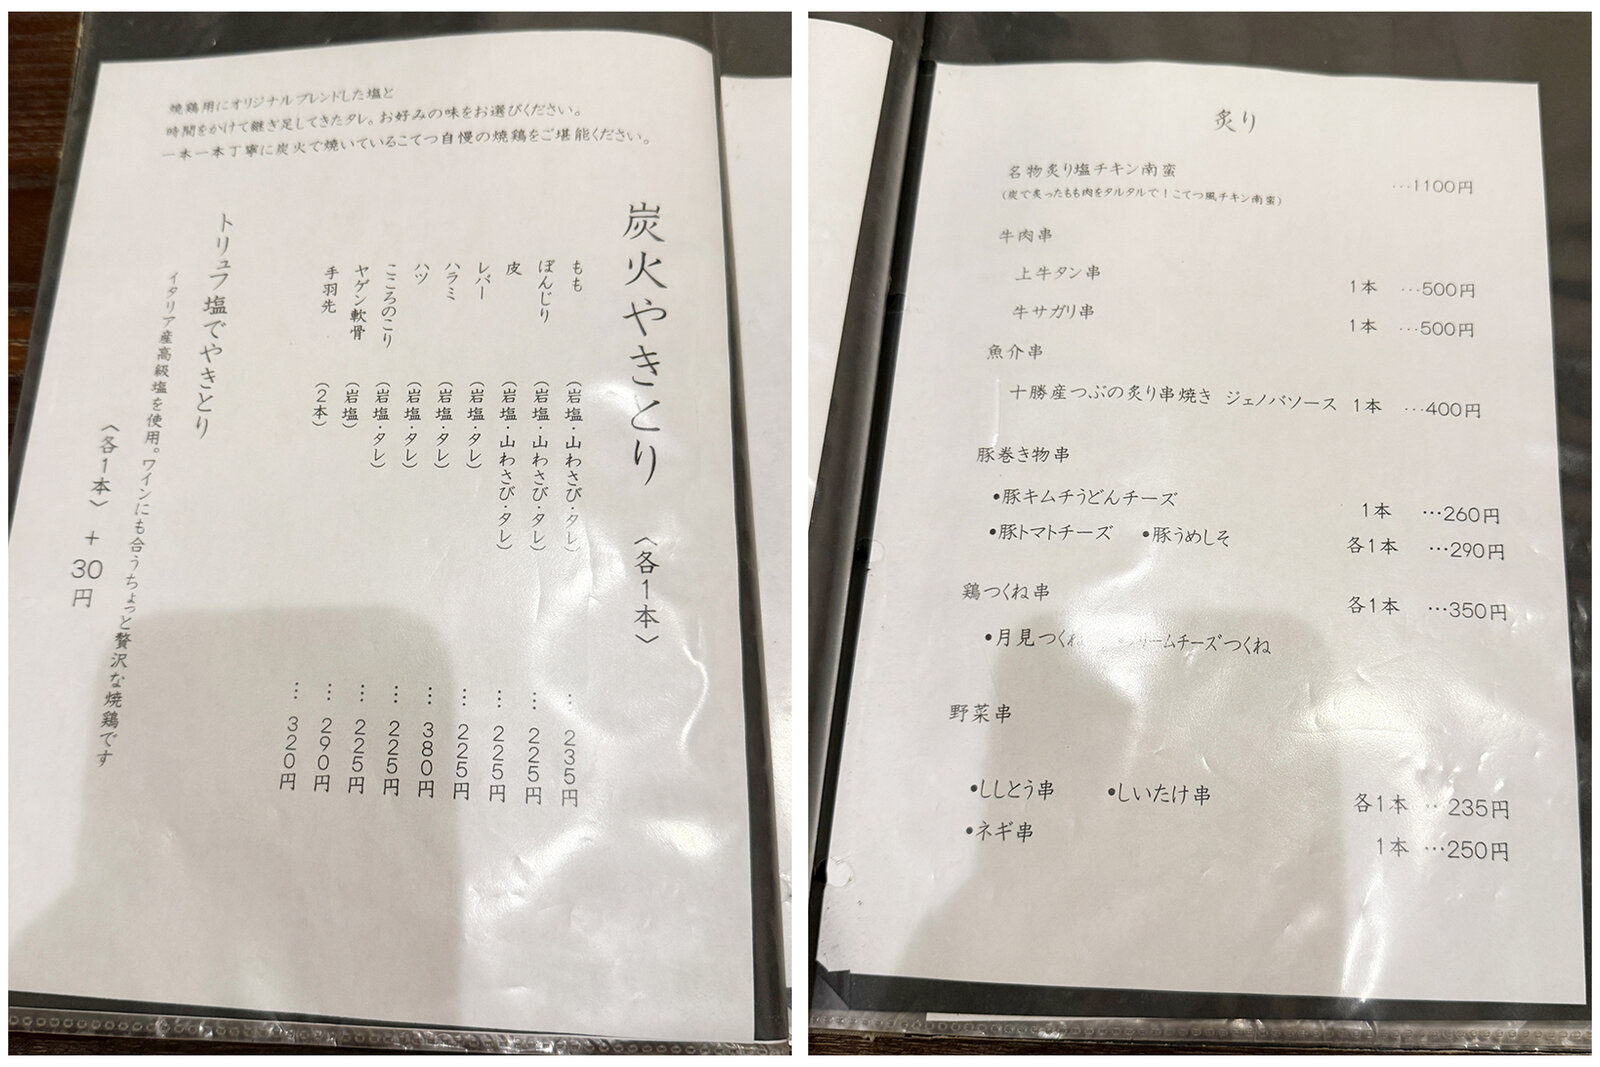 焼鶏用にオリジナルブレンドした塩と
時間をかけて継ぎ足してきたタレ。お好みの味をお選びください。
一本一本丁寧に炭火で焼いているこてつ自慢の焼鶏をご堪能ください。
炭火やきとり 〈各1本〉
もも (岩塩・山わさび・タレ) … 235円
ぼんじり (岩塩・山わさび・タレ) … 225円
皮 (岩塩・山わさび・タレ) … 225円
レバー (岩塩・タレ) … 225円
ハラミ (岩塩・タレ) … 380円
ハツ (岩塩・タレ) … 225円
こころのこり (岩塩・タレ) … 225円
ヤゲン軟骨 (岩塩) … 290円
手羽先 (2本) … 320円
トリュフ塩でやきとり
イタリア産高級塩を使用。ワインにも合うちょっと贅沢な焼鶏です
〈各1本〉 + 30円
炙り
名物炙り塩チキン南蛮 …1100円
(炭で炙ったもも肉をタルタルで！こてつ風チキン南蛮)
牛肉串
上牛タン串 1本 …500円
牛サガリ串 1本 …500円
魚介串
十勝産つぶの炙り串焼き ジェノバソース 1本 …400円
豚巻き物串
•豚キムチうどんチーズ 1本 …260円
•豚トマトチーズ •豚うめしそ 各1本 …290円
鶏つくね串 各1本 …350円
•月見つくね リームチーズつくね
野菜串
•ししとう串 •しいたけ串 各1本 … 235円
•ネギ串 1本 …250円